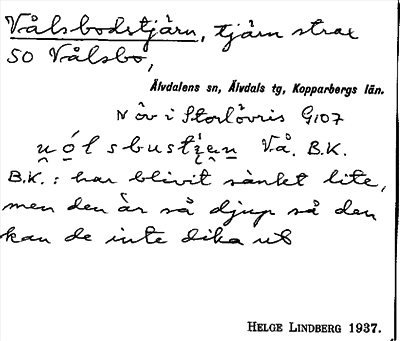 Vålsbodstjärn, tjärn strax
SO Vålsbo,
Älvdalens sn, Älvdals tg, Kopparbergs län.
N Öv i Storlövris G107
u̯ólsbusti̯än Vå. B.K.
B.K.: har blivit sänkt lite,
men den är så djup så den
kan de inte dika ut
HELGE LINDBERG 1937.